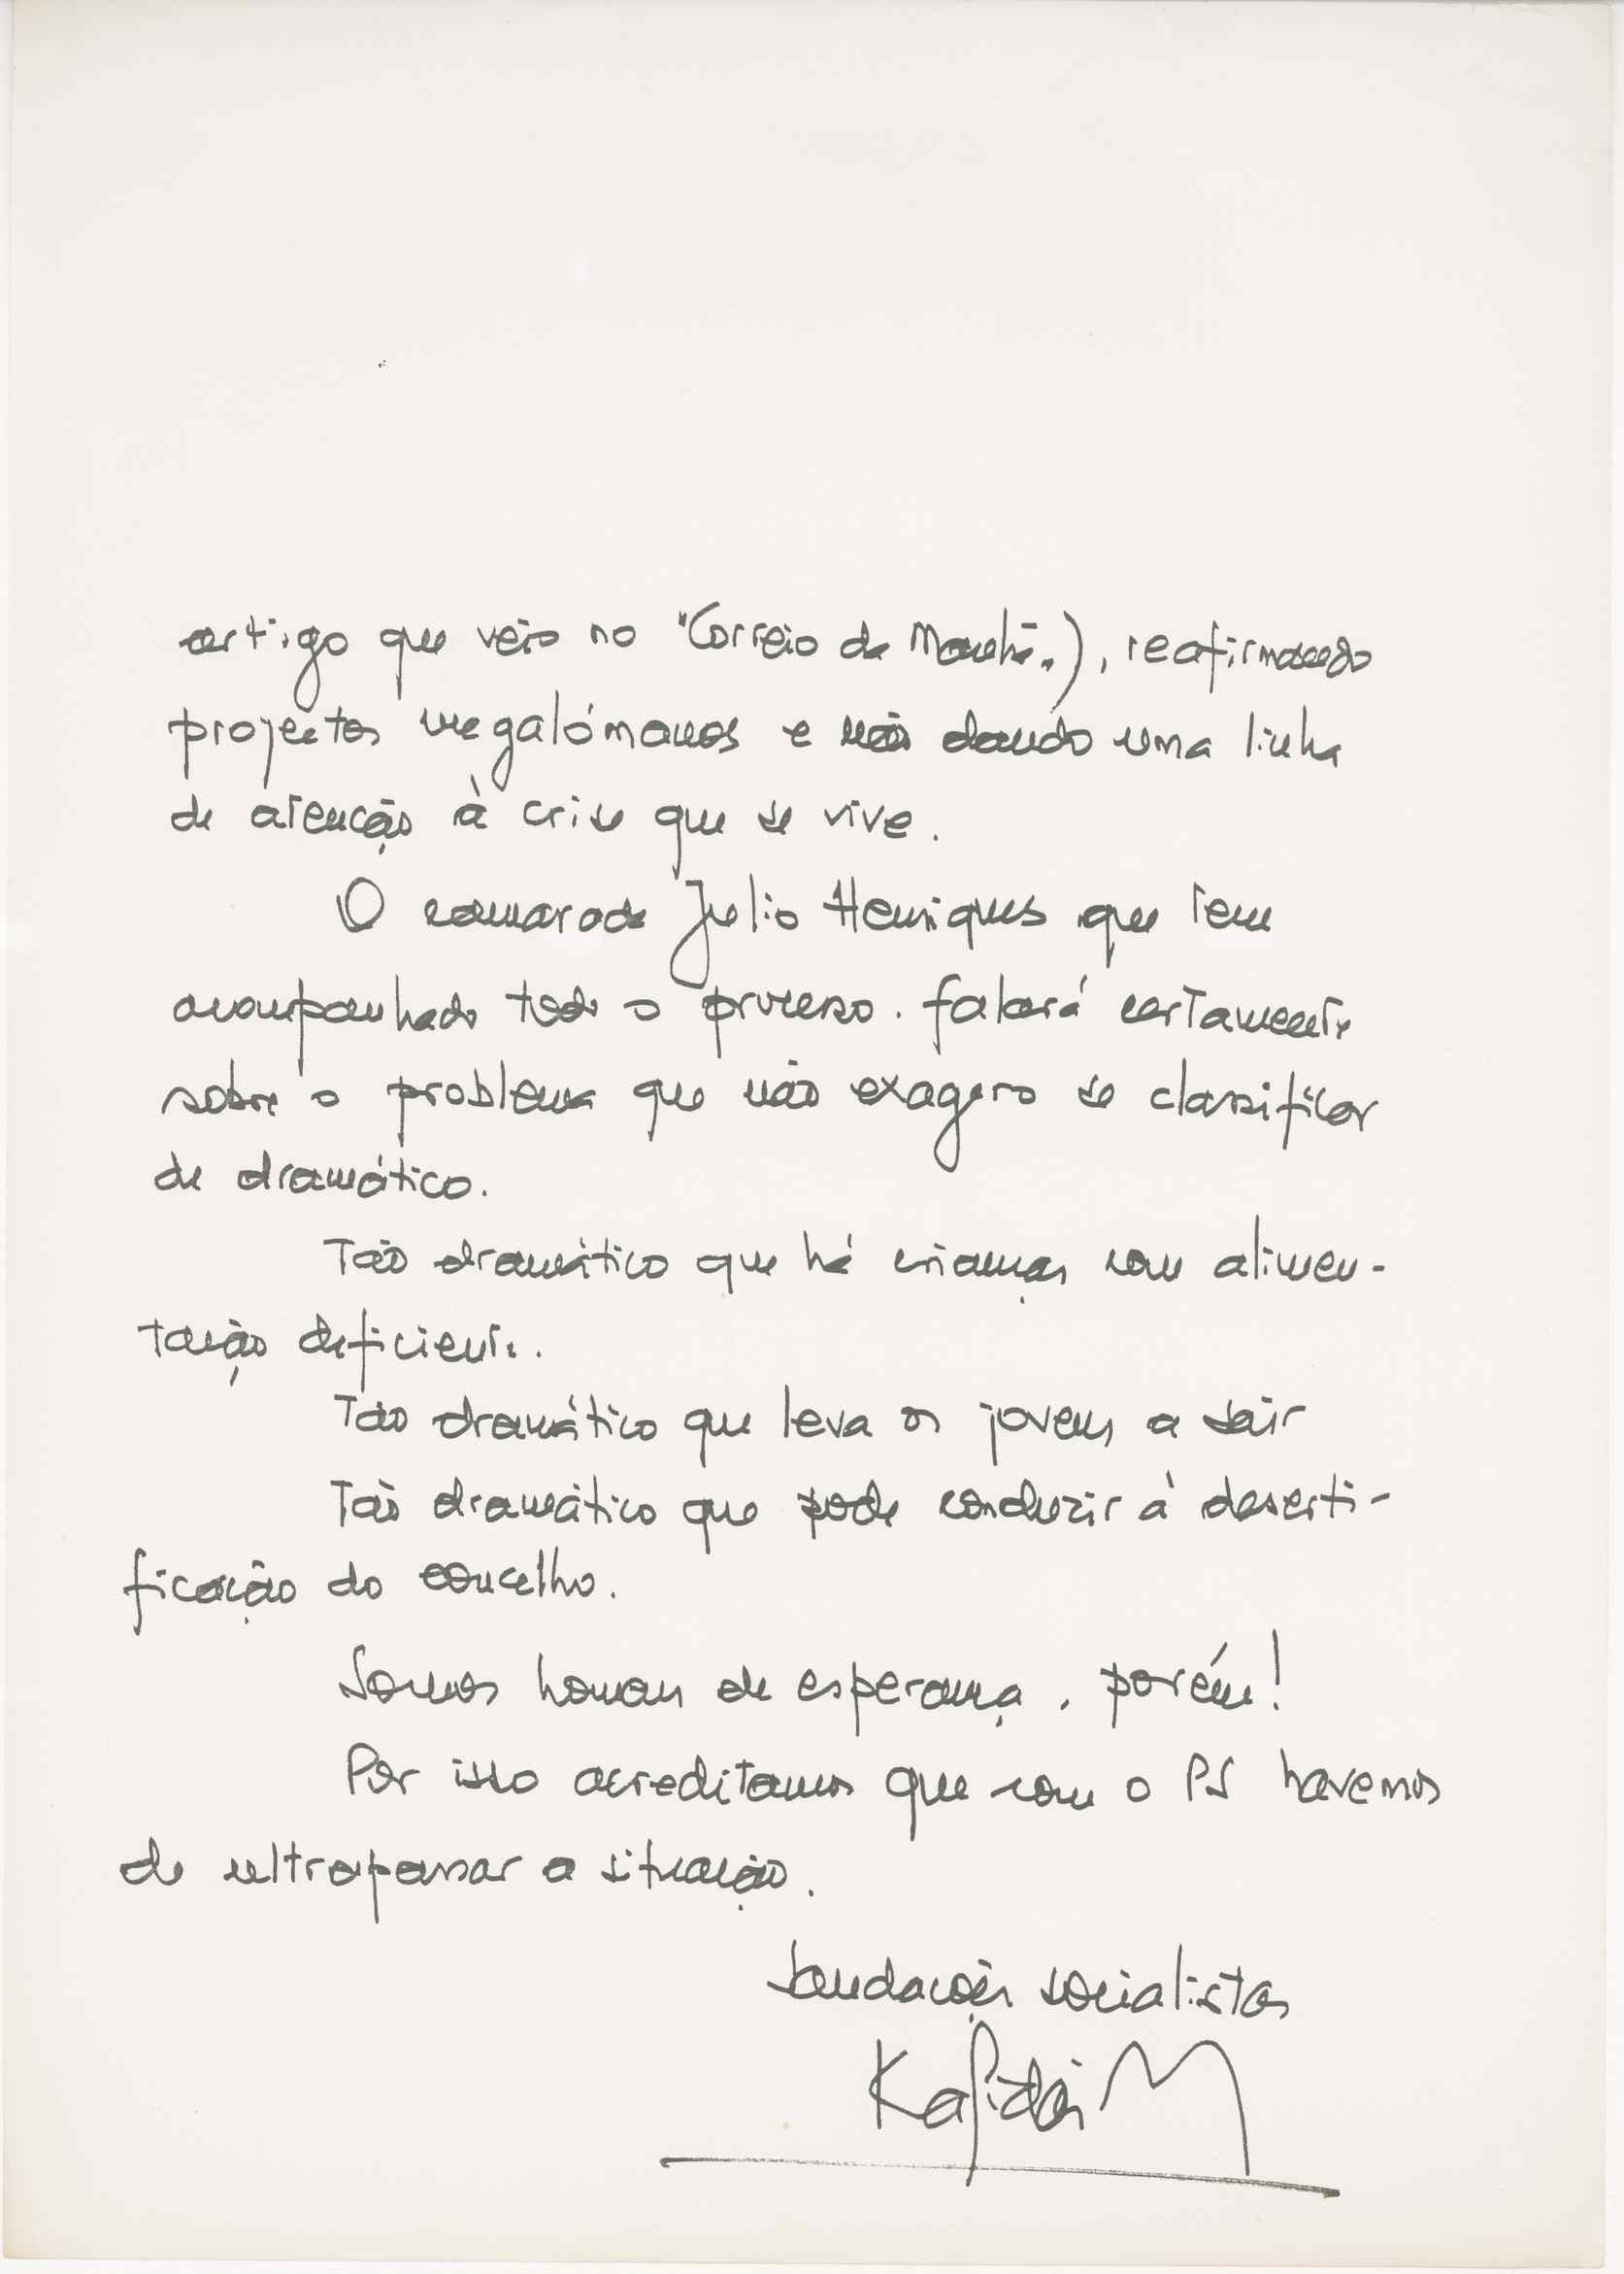 artigo que veio no "Correio da Manhã"), reafirmando
projectos megalómanos e não dando uma linha
de atenção à crise que se vive.
O camarada Julio Henriques que tem
acompanhado todo o processo. falará certamente
sobre o problema que não exagero se classificar
de dramático.
Tão dramático que há crianças com alimen-
tação deficiente.
Tão dramático que leva os jovens a sair
Tão dramático que pode conduzir à deserti-
ficação do concelho.
Somos homens de esperança, porém!
Por isso acreditamos que com o PS havemos
de ultrapassar a situação.
Saudações socialistas